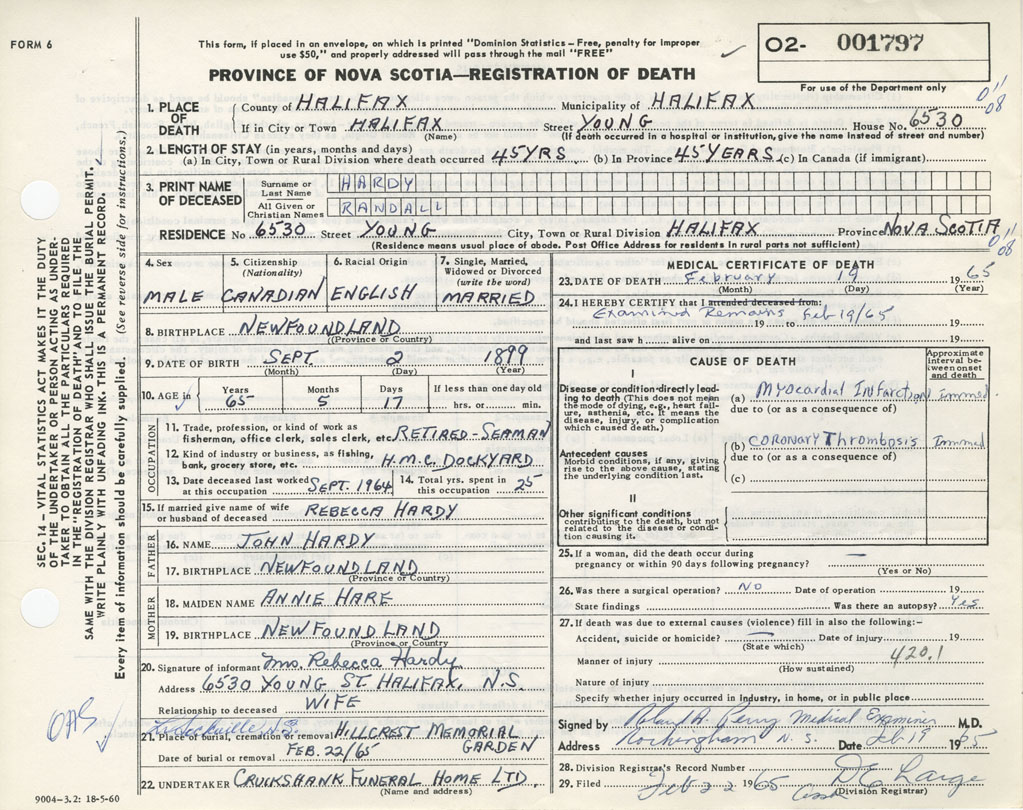 FORM 6
This form, if placed in an envelope, on which is printed "Dominion Statistics – Free, penalty for improper
use $50," and properly addressed will pass through the mail "FREE"
PROVINCE OF NOVA SCOTIA—REGISTRATION OF DEATH
02- 001797
For use of the Department only
01/08
1. PLACE OF DEATH County of HALIFAX Municipality of HALIFAX
If in City or Town HALIFAX (Name) Street YOUNG House No. 6530
(If death occurred in a hospital or institution, give the name instead of street and number)
2. LENGTH OF STAY (in years, months and days)
(a) In City, Town or Rural Division where death occurred 45 YRS (b) In Province 45 YEARS (c) In Canada (if immigrant)
3. PRINT NAME OF DECEASED Surname or Last Name HARDY
All Given or Christian Names RANDALL
RESIDENCE No 6530 Street YOUNG City, Town or Rural Division HALIFAX Province NOVA SCOTIA
(Residence means usual place of abode. Post Office Address for residents in rural parts not sufficient)
01/08
4. Sex MALE
5. Citizenship (Nationality) CANADIAN
6. Racial Origin ENGLISH
7. Single, Married, Widowed or Divorced (write the word) MARRIED
8. BIRTHPLACE NEWFOUNDLAND
(Province or Country)
9. DATE OF BIRTH SEPT. 2 1899
(Month) (Day) (Year)
10. AGE in Years 65 Months 5 Days 17 If less than one day old hrs. or min.
OCCUPATION
11. Trade, profession, or kind of work as
fisherman, office clerk, sales clerk, etc. RETIRED-SEAMAN
12. Kind of industry or business, as fishing,
bank, grocery store, etc. H.M.C. DOCKYARD
13. Date deceased last worked at this occupation SEPT. 1964 14. Total yrs. spent in this occupation 25
15. If married give name of wife
or husband of deceased REBECCA HARDY
FATHER
16. NAME JOHN HARDY
17. BIRTHPLACE NEWFOUNDLAND
(Province or Country)
MOTHER
18. MAIDEN NAME ANNIE HARE
19. BIRTHPLACE NEWFOUNDLAND
(Province or Country)
20. Signature of informant Mrs. Rebecca Hardy
Address 6530 YOUNG ST. HALIFAX, N.S.
Relationship to deceased WIFE
21. Place of burial, cremation or removal HILLCREST MEMORIAL GARDEN
Date of burial or removal FEB. 22/65
22. UNDERTAKER CRUIKSHANK FUNERAL HOME LTD.
(Name and address)
MEDICAL CERTIFICATE OF DEATH
23. DATE OF DEATH February 19 1965
(Month) (Day) (Year)
24. I HEREBY CERTIFY that I attended deceased from:
Examined Remains Feb 19/65
19 to 19
and last saw h alive on 19
CAUSE OF DEATH
Approximate interval between onset and death
I
Disease or condition directly leading to death (This does not mean the mode of dying, e.g., heart failure, asthenia, etc. It means the disease, injury, or complication which caused death.)
(a) Myocardial Infarction Immed
due to (or as a consequence of)
Antecedent causes
Morbid conditions, if any, giving rise to the above cause, stating the underlying condition last.
(b) CORONARY Thrombosis Immed
due to (or as a consequence of)
(c)
II
Other significant conditions
contributing to the death, but not related to the disease or condition causing it.
25. If a woman, did the death occur during
pregnancy or within 90 days following pregnancy? —
(Yes or No)
26. Was there a surgical operation? NO Date of operation 19
State findings Was there an autopsy? Yes
27. If death was due to external causes (violence) fill in also the following:-
Accident, suicide or homicide? — Date of injury 19
(State which)
420.1
Manner of injury
(How sustained)
Nature of injury
Specify whether injury occurred in industry, in home, or in public place
Signed by Roland A. Perry Medical Examiner M.D.
Address Rockingham N.S. Date Feb 19 1965
28. Division Registrar's Record Number
29. Filed Feb 22 1965 D E Large
(Division Registrar)
SEC. 14 – VITAL STATISTICS ACT MAKES IT THE DUTY
OF THE UNDERTAKER OR PERSON ACTING AS UNDER-
TAKER TO OBTAIN ALL THE PARTICULARS REQUIRED
IN THE "REGISTRATION OF DEATH" AND TO FILE THE
SAME WITH THE DIVISION REGISTRAR WHO SHALL ISSUE THE BURIAL PERMIT.
WRITE PLAINLY WITH UNFADING INK. THIS IS A PERMANENT RECORD.
Every item of information should be carefully supplied. (See reverse side for instructions.)
OAS
9004-3.2: 18-5-60